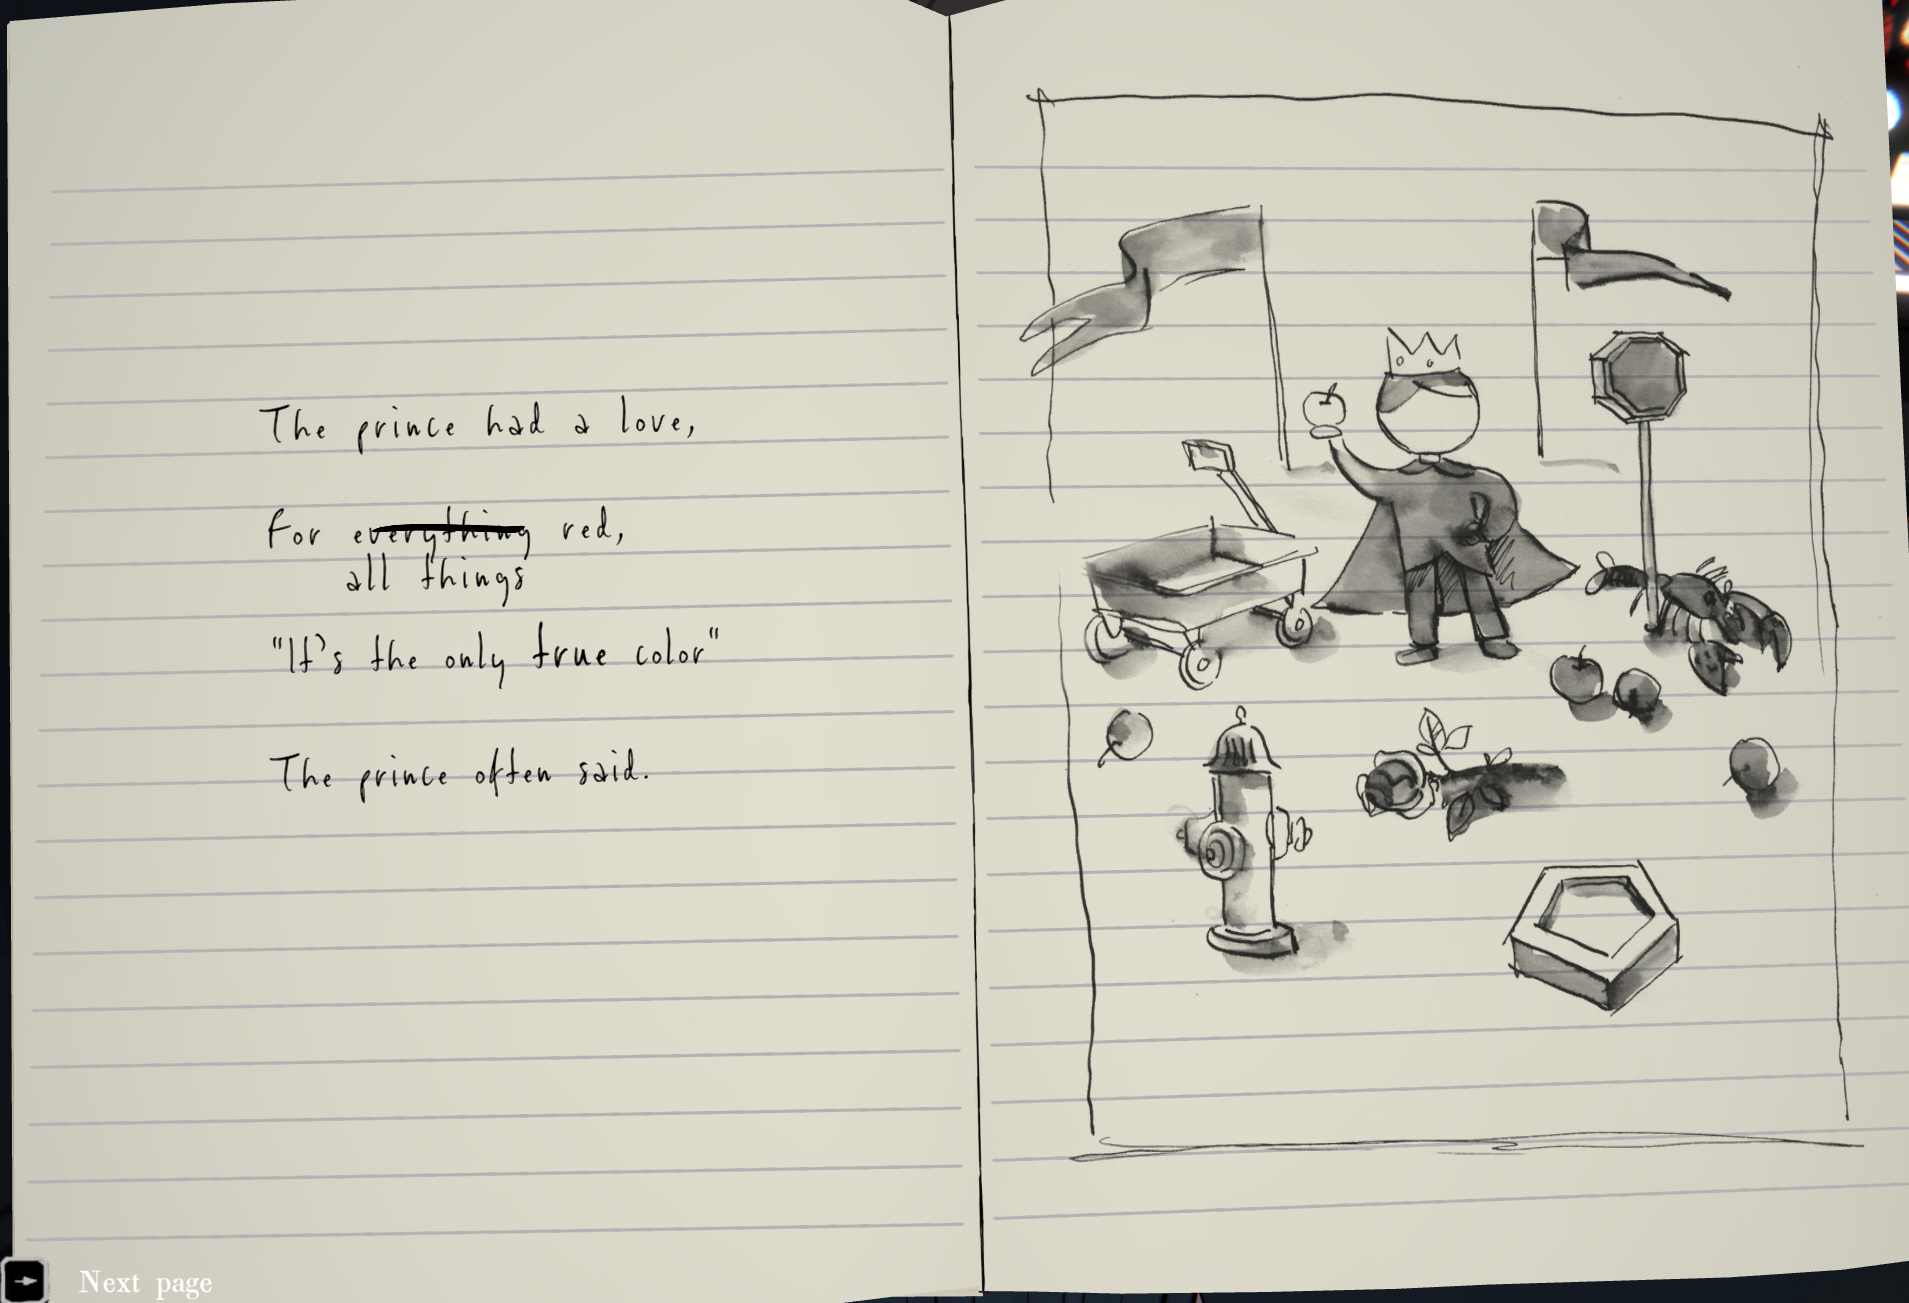 The prince had a love,
For everything red,
all things
"It's the only true color"
The prince often said.
Next page